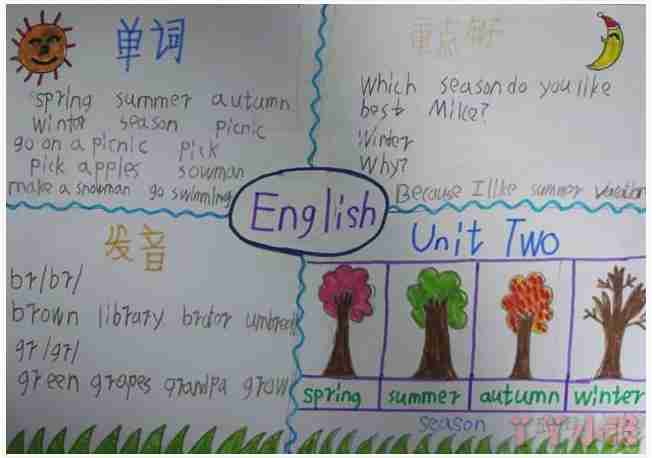 单词
spring summer autumn
winter season picnic
go on a picnic pick
pick apples sowman
make a snowman go swimming
重点句子
Which season do you like
best Mike?
Winter
Why?
Because I like summer vacation
English
发音
br/br/
brown library brotor umbrella
gr/gr/
green gropes grandpa grow
Unit Two
spring summer autumn winter
season